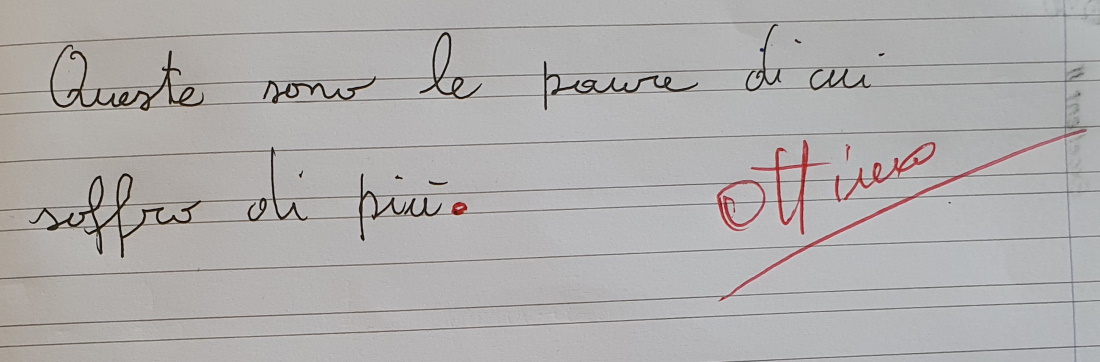 Queste sono le paure di cui
soffro di più.
Ottimo